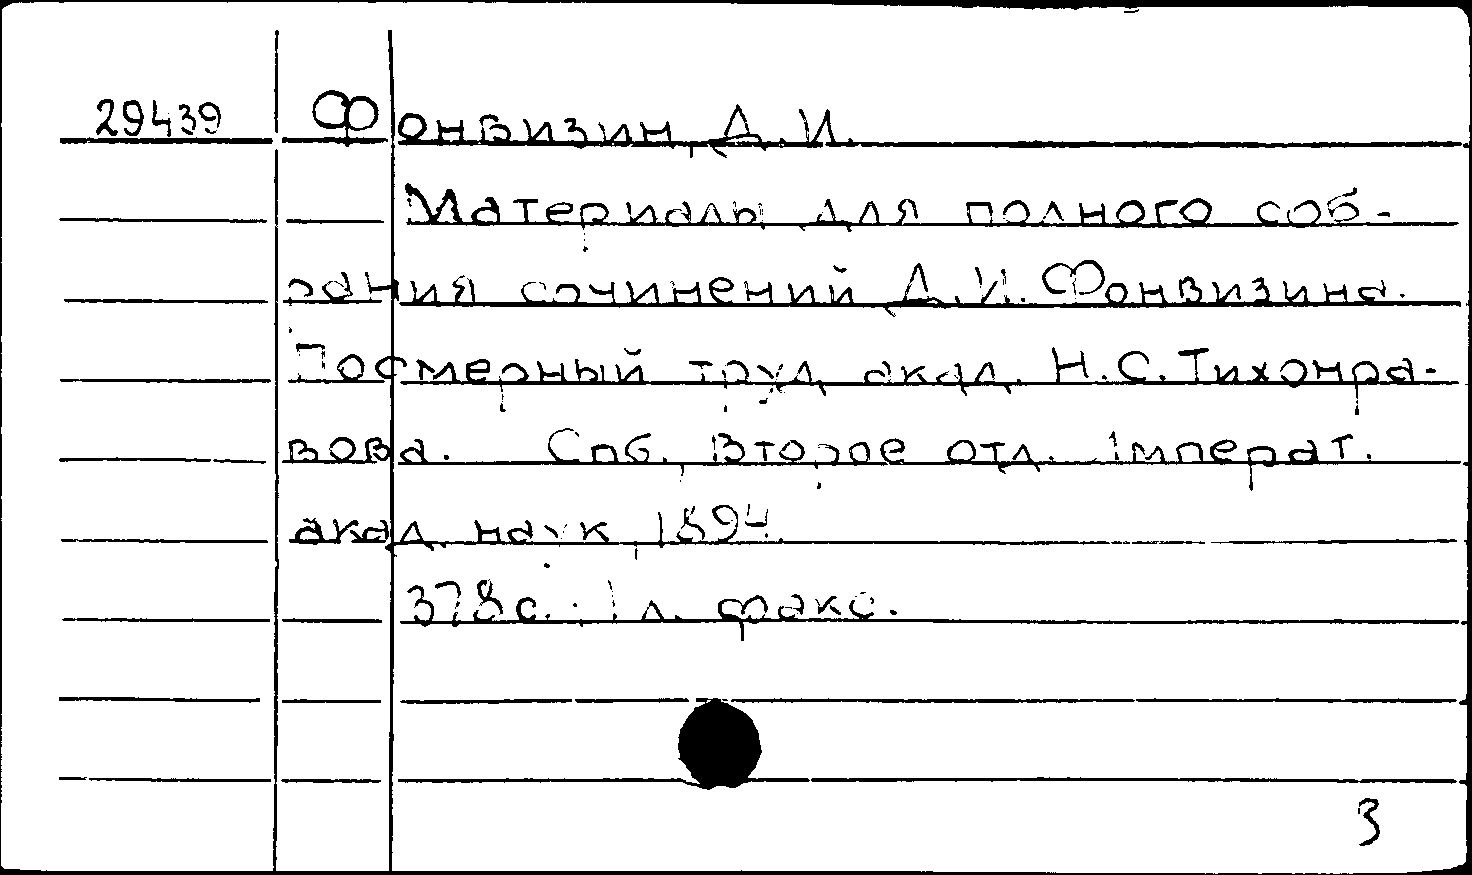 29439 Фонвизин, Д.И.
Материалы для полного соб-
рания сочинений Д.И. Фонвизина.
Посмерный труд акад. Н.С. Тихонра-
вова. Спб. Второе отд. Императ.
акад. наук, 1894.
378с.; 1 л. факс.
3